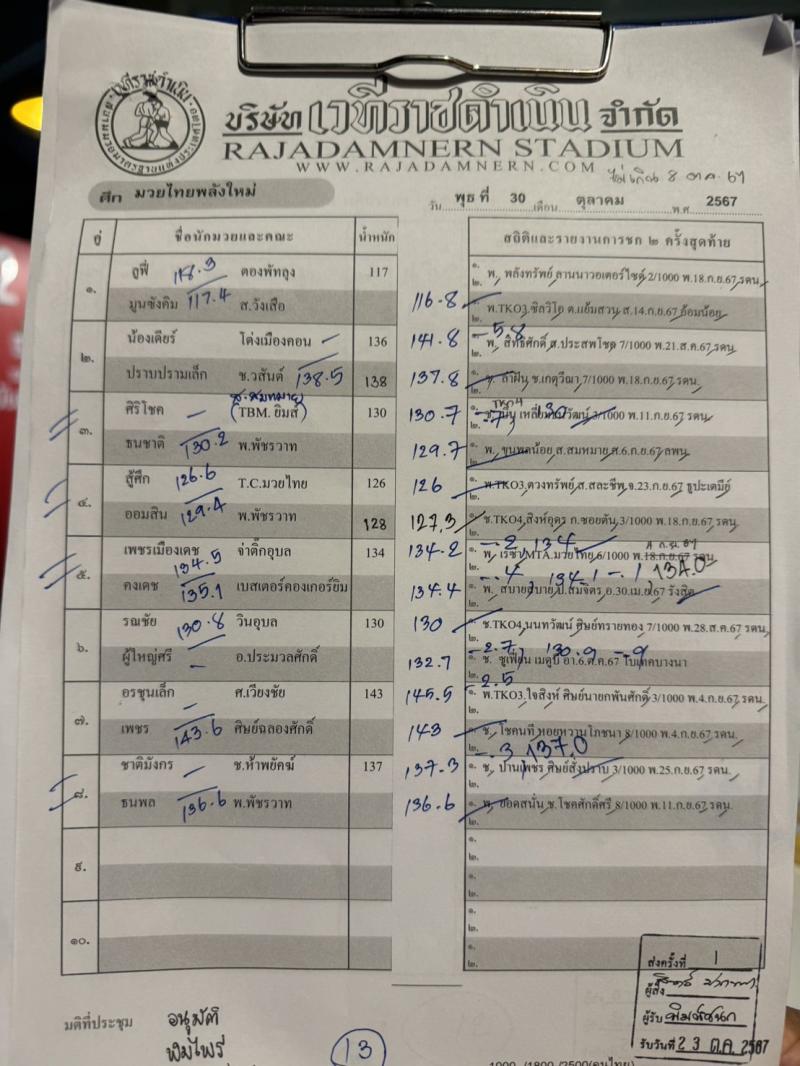 บริษัท เวทีราชดำเนิน จำกัด
RAJADAMNERN STADIUM
WWW.RAJADAMNERN.COM
ไม่เกิน 8 ตค. 67
ศึก มวยไทยพลังใหม่
วัน พุธ ที่ 30 เดือน ตุลาคม พ.ศ 2567
คู่ ชื่อนักมวยและคณะ น้ำหนัก สถิติและรายงานการชก ๒ ครั้งสุดท้าย
๑. 118.3 ตองพัทลุง 117 ๑. พ, พลังทรัพย์ ลานนาวอเตอร์ไซด์ 2/1000 พ.18.ก.ย.67 รดน.
๒.
มูนซังคิม 117.4 ส.วังเสือ 116.8 พ.TKO3.ซิลวิโอ ต.แย้มสวน ส.14.ก.ย.67 อ้อมน้อย
๒. น้องเดียร์ โต่งเมืองคอน 136 141.8 -5.8 พ, สิทธิศักดิ์ ส.ประสพโชค 7/1000 พ.21.ส.ค.67 รดน.
ปราบปรามเล็ก ช.วสันต์ 138.5 138 137.8 ลำฝัน ช.เกตุวีณา 7/1000 พ.18.ก.ย.67 รดน.
๓. ศิริโชค ส.สมหมาย (TBM. ยิมส์) 130 130.7 TKO4 130 3/1000 พ.11.ก.ย.67 รดน.
ธนชาติ 130.2 พ.พัชรวาท 129.7 พ, ขุนพลน้อย ส.สมหมาย ส.6.ก.ย.67 ลพน.
๔. สู้ศึก 126.6 T.C.มวยไทย 126 126 พ.TKO3.ดวงทรัพย์ ส.สละชีพ จ.23.ก.ย.67 ธูปะเตมีย์
ออมสิน 129.4 พ.พัชรวาท 128 127.3 ช.TKO4.สิงห์อุดร ก.ซอยตัน 3/1000 พ.18.ก.ย.67 รดน.
๕. เพชรเมืองเดช 134.5 จ่าติ๊กอุบล 134 134.2 -.2 134 พ, MTA.มวยไทย 6/1000 พ.18.ก.ย.67 รดน.
-.4 134.1 -.1 134.0
คงเดช 135.1 เบสเตอร์คองเกอร์ยิม 134.4 พ, สบายสบาย ป.สมจิตร อ.30.เม.ย.67 รังสิต
๖. รณชัย 130.8 วินอุบล 130 130 ช.TKO4.นนทวัฒน์ ศิษย์ทรายทอง 7/1000 พ.28.ส.ค.67 รดน.
-2.7 130.9 -.9
ผู้ใหญ่ศรี อ.ประมวลศักดิ์ 132.7 ช. อา.6.ต.ค.67 ไบเทคบางนา
-2.5
๗. อรชุนเล็ก ศ.เวียงชัย 143 145.5 พ.TKO3.ใจสิงห์ ศิษย์นายกพันศักดิ์ 3/1000 พ.4.ก.ย.67 รดน.
เพชร 143.6 ศิษย์ฉลองศักดิ์ 143 ช, โชคนที หอยหวานโภชนา 8/1000 พ.4.ก.ย.67 รดน.
-.3 137.0
๘. ชาติมังกร ช.ห้าพยัคฆ์ 137 137.3 ช, ปานเพชร ศิษย์สั่งปราบ 3/1000 พ.25.ก.ย.67 รดน.
ธนพล 136.6 พ.พัชรวาท 136.6 พ, ยอดสนั่น ช.โชคศักดิ์ศรี 8/1000 พ.11.ก.ย.67 รดน.
๙. ๑.
๒.
๑๐. ๑.
๒.
ส่งครั้งที่ 1
ผู้ส่ง
ผู้รับ พิมพ์ชนก
รับวันที่ 23 ต.ค. 2567
มติที่ประชุม อนุมัติ
พิมไพรี
13